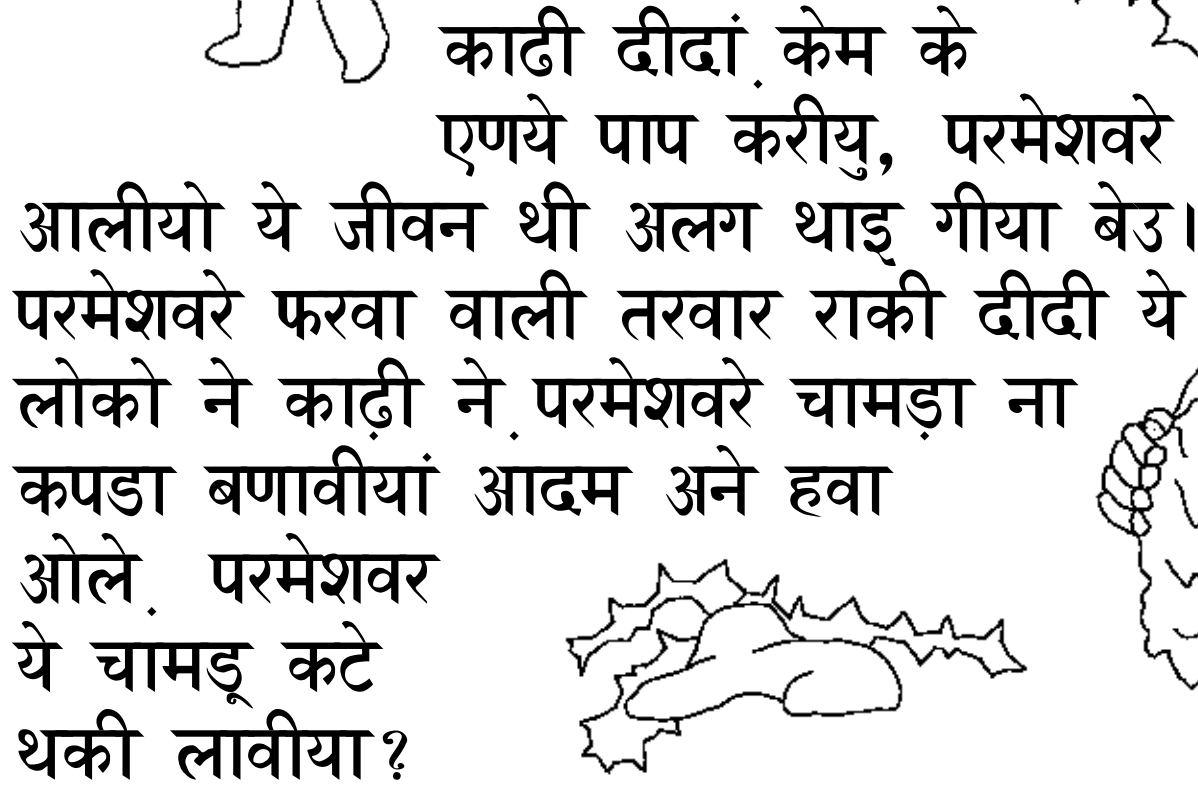 काढी दीदां. केम के
एणये पाप करीयु, परमेशवरे
आलीयो ये जीवन थी अलग थाइ गीया बेउ।
परमेशवरे फरवा वाली तरवार राकी दीदी ये
लोको ने काढ़ी ने. परमेशवरे चामड़ा ना
कपडा बणावीयां आदम अने हवा
ओले. परमेशवर
ये चामडू कटे
थकी लावीया?